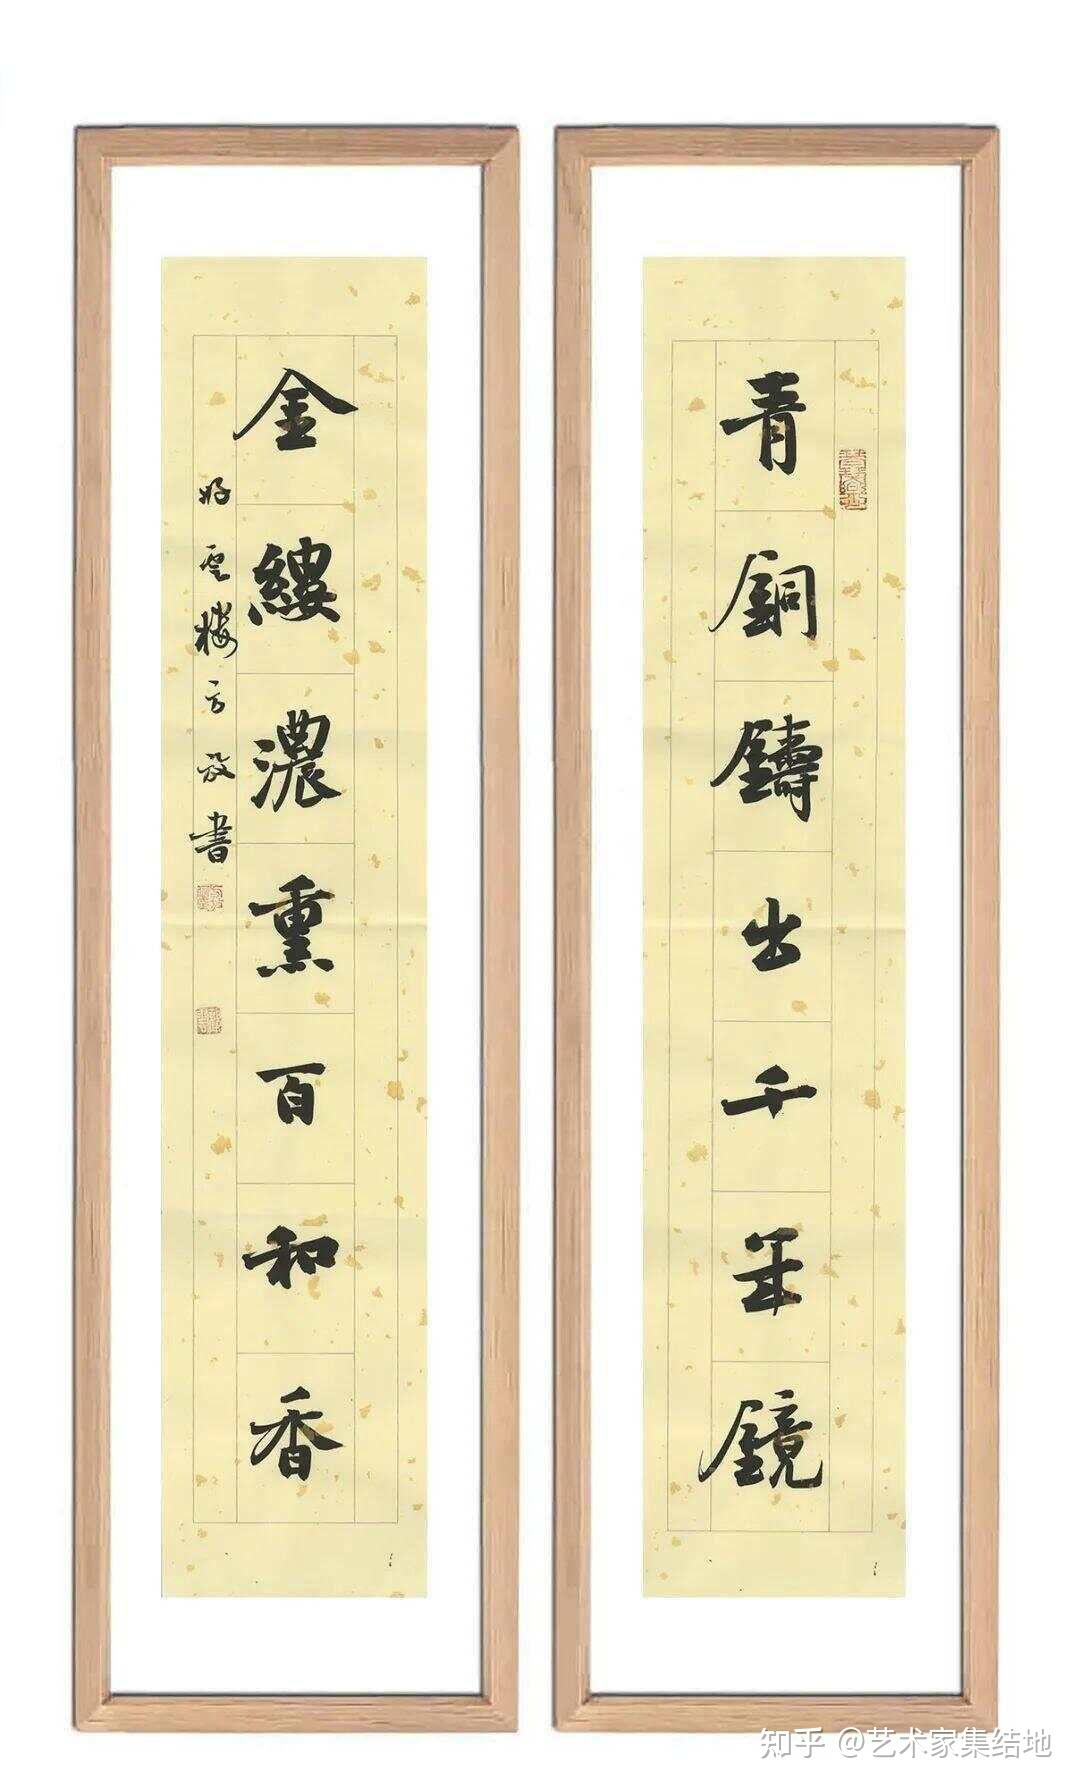 青銅鑄出千年鏡
金縷濃熏百和香
好雲樓方放書
知乎 @艺术家集结地